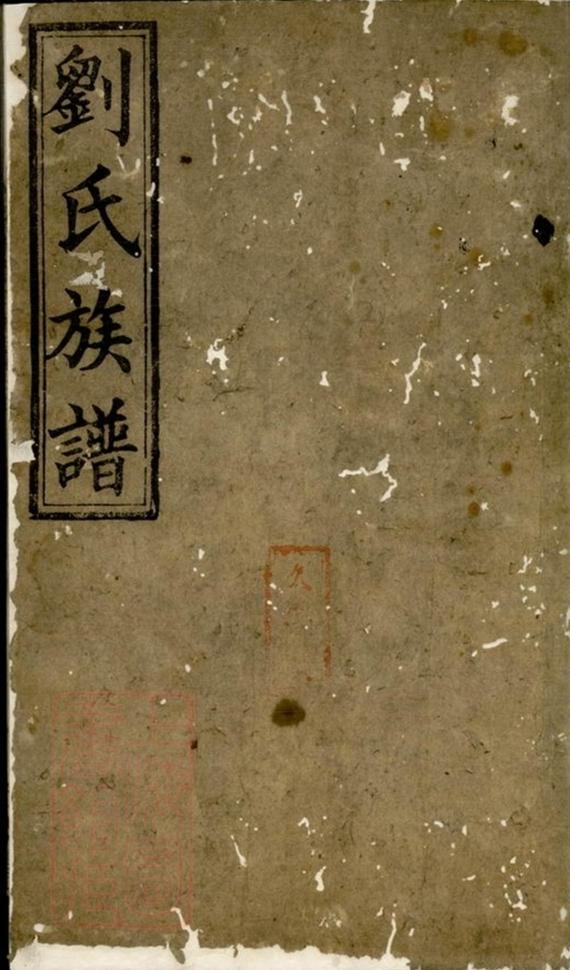 劉氏族譜
久